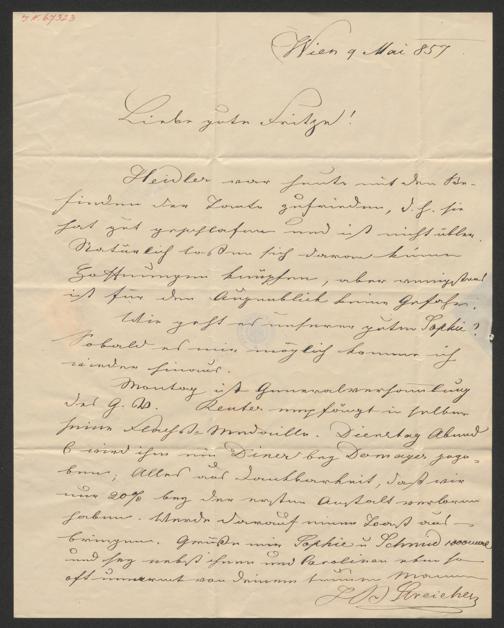 J.N. 67323
Wien 9 Mai 857
Liebe gute Fritze!
Heidler war heute mit dem Be-
finden der Tante zufrieden, d.h. sie
hat gut geschlafen und ist nicht übler.
Natürlich lassen sich daran keine
Hoffnungen knüpfen, aber wenigstens
ist für den Augenblick keine Gefahr.
Wie geht es unserer guten Sophie?
Sobald es mir möglich komme ich
wieder hinaus.
Montag ist Generalversammlung
des G. V. Reuter empfängt in selber
seine Medaille. Dienstag Abend
6 wird ihm ein Diner bey Domayer gege-
ben; Alles aus Dankbarkeit, daß wir
nur 20% bey der ersten Anstalt verloren
haben. Werde darauf einen Toast aus-
bringen. Grüße mir Sophie u Schmid 1000mal
und sey nebst ihnen und Carolinen eben so
oft umarmt von deinem treuen Mann
JB Streicher